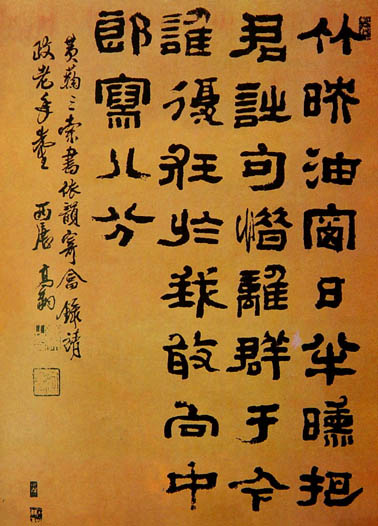 竹映油窗日半曛把
君詩句惜離群于今
誰復狂於我敢向中
郎寫八分
黄菊三索書依韻寄答錄請
政老年臺 西唐高翔